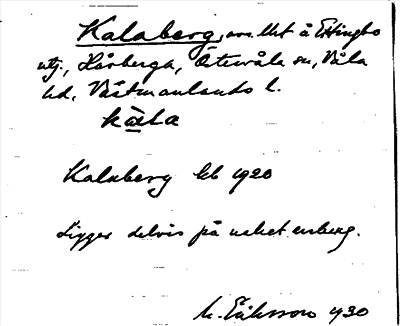 Kalaberg, om. Mst å Ettingbo
utj., Hårberga, Östervåla sn, Våla
hd, Västmanlands l.
kàla
Kalaberg Gb 1920
Ligger delvis på naket enberg.
M. Eriksson 1930